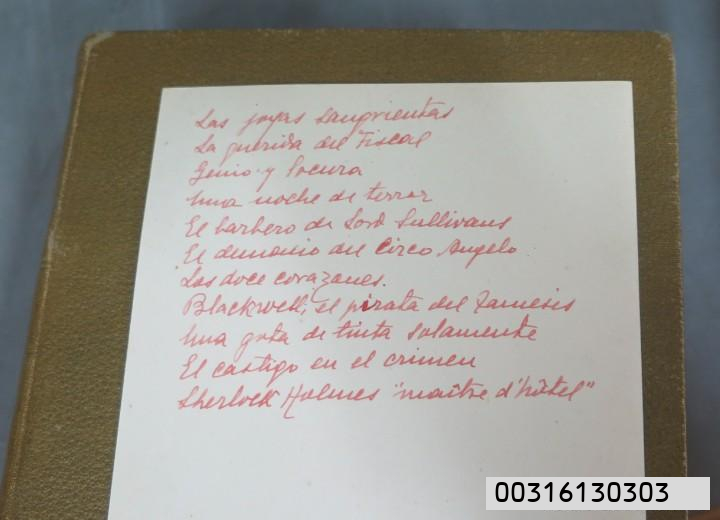 Las joyas sangrientas
La querida del Fiscal
Genio y locura
Una noche de terror
El barbero de Lord Sullivans
El demonio del Circo Angelo
Los doce corazones.
Blackwell, el pirata del Tamesis
Una gota de tinta solamente
El castigo en el crimen
Sherlock Holmes "maître d'hôtel"
00316130303